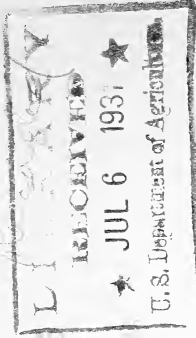 LIBRARY
RECEIVED
★ JUL 6 1937 ★
U. S. Department of Agriculture